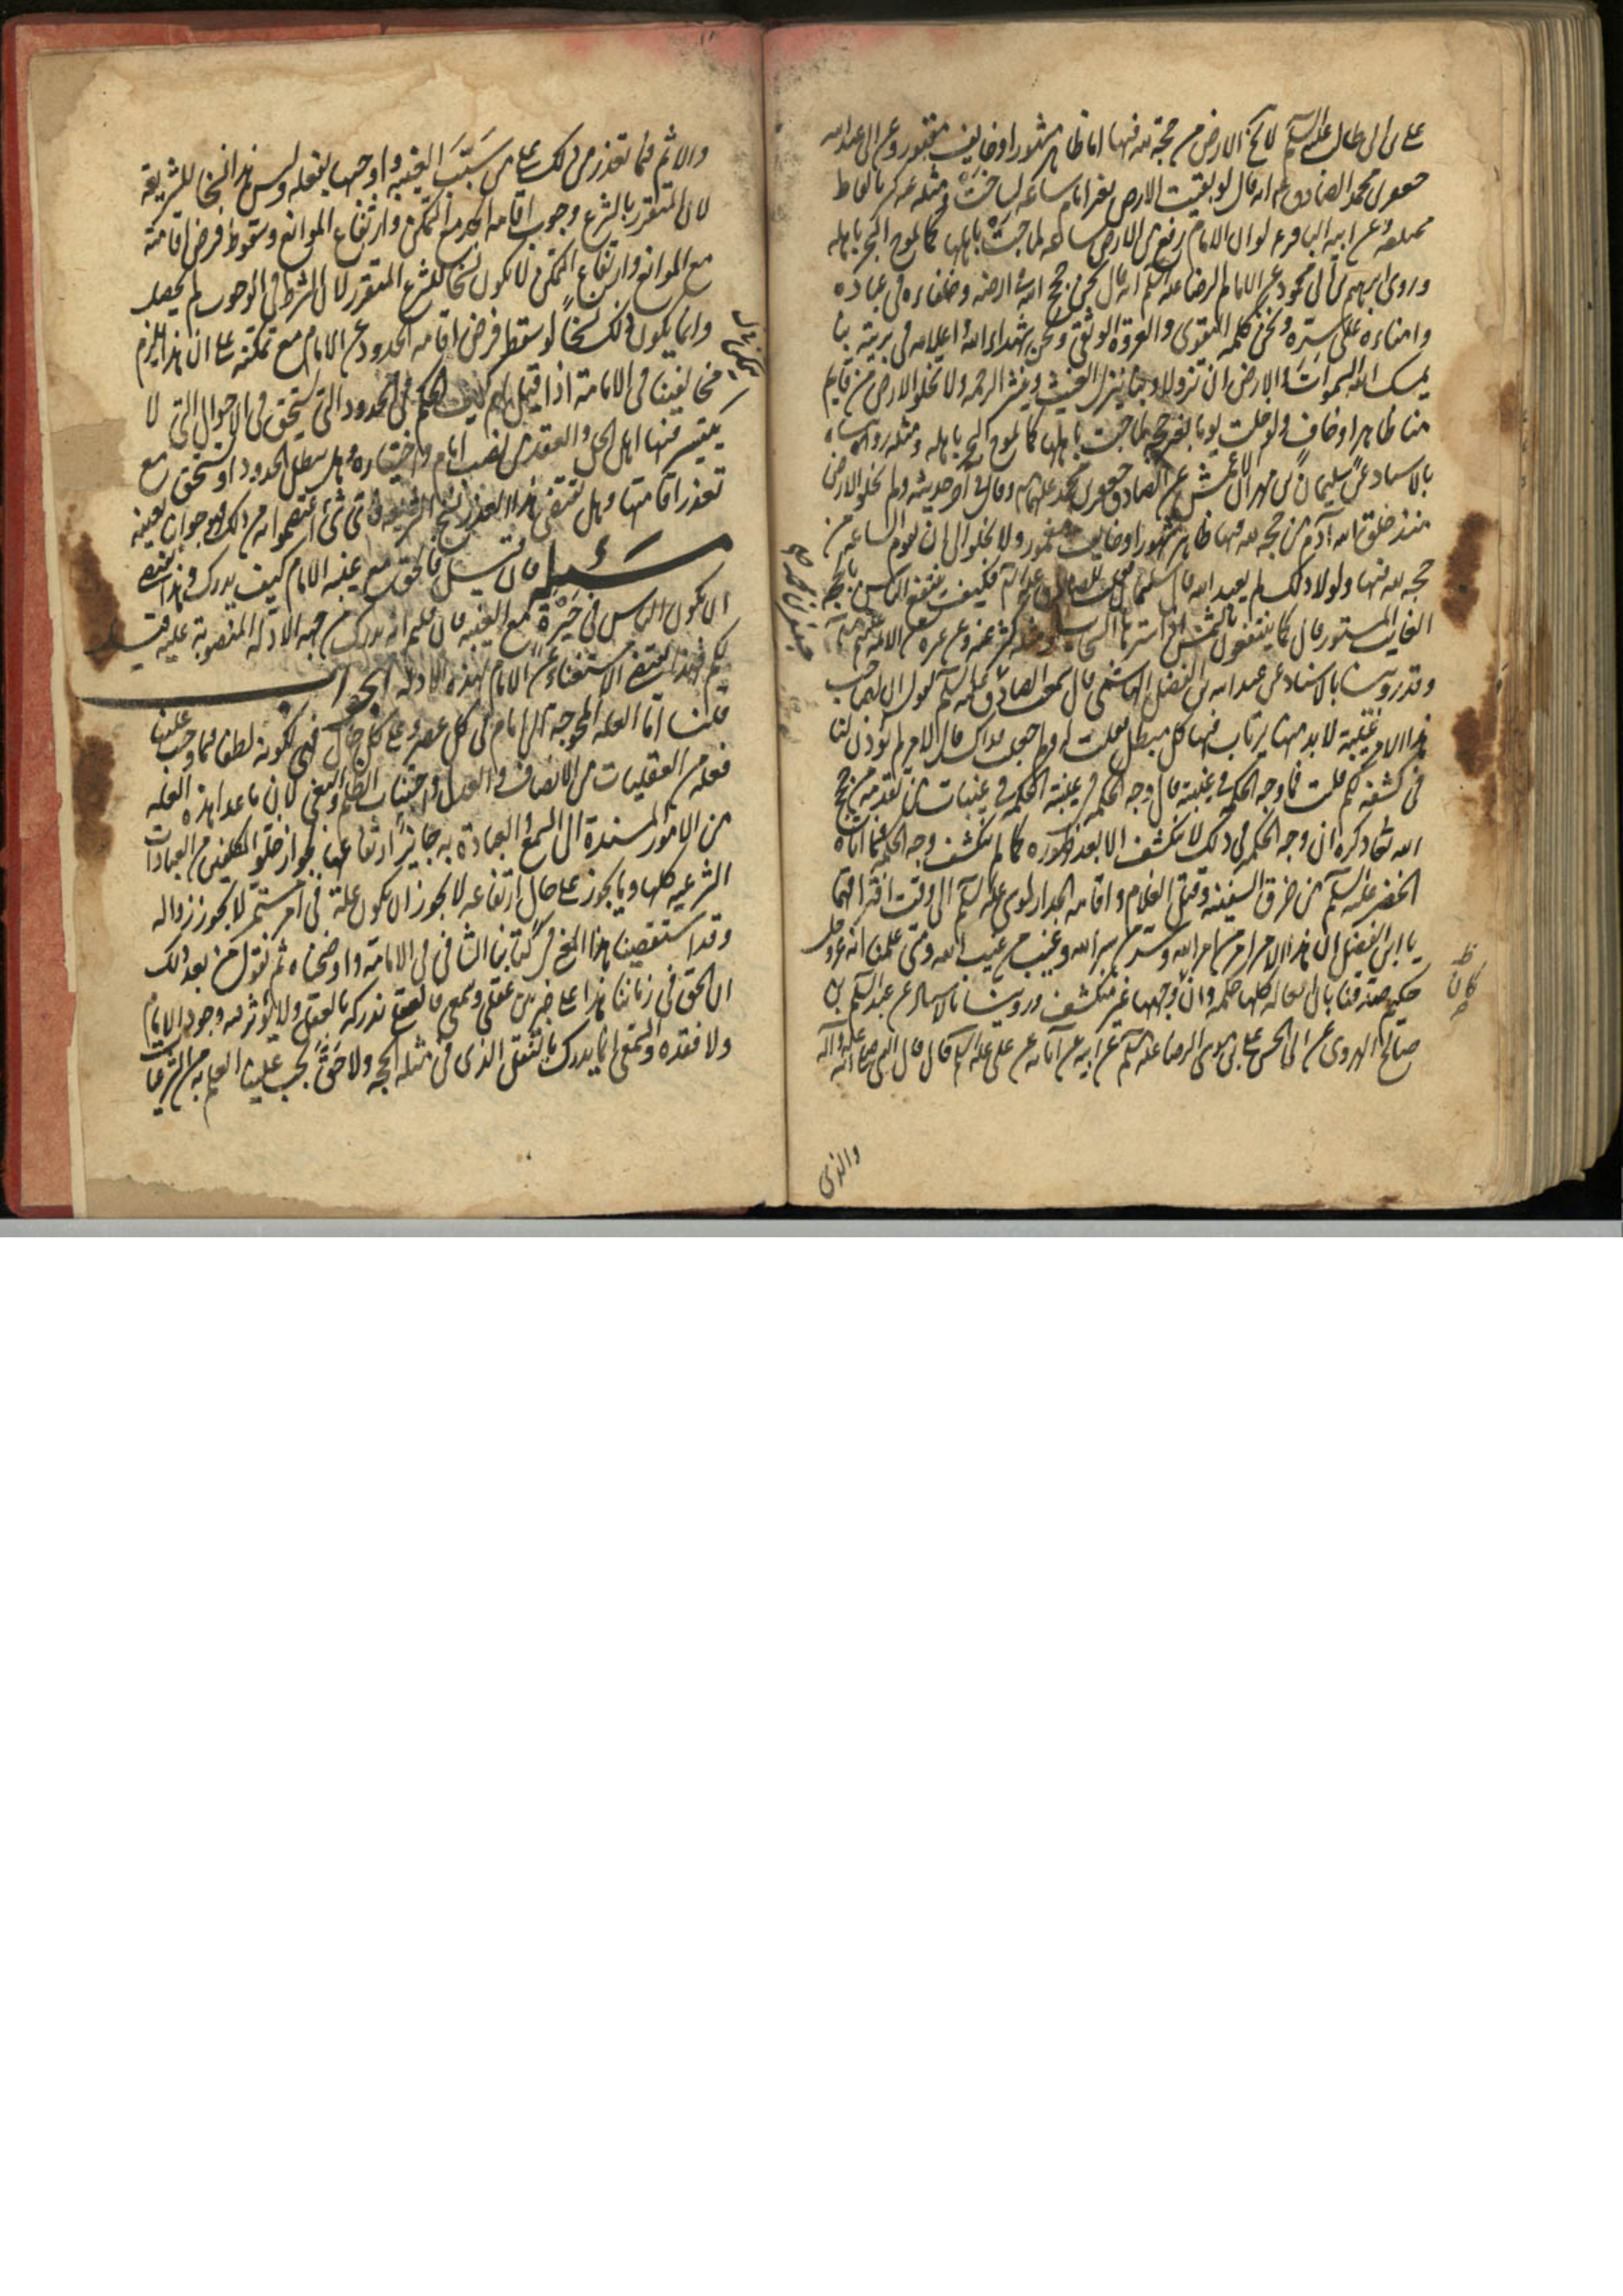 على بن ابى طالب عليه السلم لا تخلو الارض من حجة لله فيها اما ظاهر مشهور او خايف مقهور وعن ابى عبد الله
جعفر بن محمد الصادق ع انه قال لو بقيت الارض بغير امام ساعه لساخت ومثله عنه بالفاظ
مختلفه وعن ابيه الباقر ع لو ان الامام رفع من الارض ساعه لماجت باهلها كما يموج البحر باهله
وروى ابرهيم بن ابى محمود عن الامام الرضا عليه السلم انه قال نحن حجج الله فى ارضه وخلفاءه فى عباده
وامناءه على سره ونحن كلمه التقوى والعروة الوثقى ونحن شهداء الله واعلامه فى بريته بنا
يمسك الله السموات والارض ان تزولا وبنا ينزل الغيث وينشر الرحمه ولا تخلو الارض من قايم
منا ظاهر او خاف ولو خلت يوما بغير حجه لماجت باهلها كما يموج البحر باهله ومثله رويناه
بالاسناد عن سليمان بن مهران الاعمش عن الصادق جعفر بن محمد عليهما وقال فى اخر حديثه ولم تخلو الارض
منذ خلق الله آدم من حجه لله فيها ظاهر مشهور او غايب مستور ولا تخلو الى ان تقوم الساعه من
حجه لله فيها ولولا ذلك لم يعبد الله قال سليمان فكيف ينتفع الناس بالحجه
الغايب المستور قال كما ينتفعون بالشمس اذا سترها السحاب ومثله كثير عنه وعن غيره من الائمه عليهم
وقد روينا بالاسناد عن عبد الله بن الفضل الهاشمى قال سمعت الصادق عليه السلم يقول ان لصاحب
هذا الامر غيبة لا بد منها يرتاب فيها كل مبطل فقلت له ولم جعلت فداك قال لامر لم يؤذن لنا
فى كشفه لكم قلت فما وجه الحكمه فى غيبته قال وجه الحكمه فى غيبته الحكمه فى غيبات من تقدمه من حجج
الله تعالى ذكره ان وجه الحكمه فى ذلك لا ينكشف الا بعد ظهوره كما لم ينكشف وجه الحكمه فيما اتاه
الخضر عليه السلم من خرق السفينه وقتل الغلام واقامه الجدار لموسى عليه السلم الى وقت افتراقهما
يا ابن الفضل ان هذا الامر امر من امر الله وسر من سر الله وغيب من غيب الله ومتى علمنا انه عز وجل
حكيم صدقنا بان افعاله كلها حكمه وان وجهها غير منكشف وروينا بالاسناد عن عبد السلم بن
صالح الهروى عن ابى الحسن على بن موسى الرضا عليه السلم عن ابيه عن آبائه عن على عليه السلم قال قال النبى صلى الله عليه وآله
والذى
كان
والاثم فيما تعذر من ذلك على من سبب الغيبه واوجبها بفعله وليس هذا نسخا للشريعة
لان المتقرر بالشرع وجوب اقامه الحد مع التمكن وارتفاع الموانع وسقوط فرض اقامته
مع الموانع وارتفاع التمكن لا يكون نسخا للشرع المتقرر لان الشرط فى الوجوب لم يحصل
وانما يكون ذلك نسخا لو سقط فرض اقامه الحدود عن الامام مع تمكنه على ان هذا يلزم
مخالفينا فى الامامة اذا قيل لهم كيف الحكم فى الحدود التى تستحق فى الاحوال التى لا
يتيسر فيها اهل الحل والعقد من نصب امام واختياره وهل تبطل الحدود او تستحق مع
تعذر اقامتها وهل يقتضى هذا التعذر نسخ الشريعه فاى شئ اعتصموا به من ذلك فهو جوابنا بعينه
مسئله فان قيل فالحق مع غيبه الامام كيف يدرك وهذا يقتضى
ان يكون الناس فى حيرة مع الغيبه فان قلتم انه يدرك من جهه الادله المنصوبة عليه قيل
لكم فهذا يقتضى الاستغناء عن الامام بهذه الادله الجواب
قلنا اما العله المحوجة الى امام فى كل عصر وعلى كل حال فهى لكونه لطفا فيما وجب علينا
فعله من العقليات من الانصاف والعدل واجتناب الظلم والبغى لان ما عدا هذه العله
من الامور المسندة الى السمع والعبادة به جايز ارتفاعها لجواز خلو المكلفين من العبادات
الشرعيه كلها وما يجوز على حال ارتفاعه لا يجوز ان يكون علة فى امر مستمر لا يجوز زواله
وقد استقصينا هذا المعنى فى كتابنا الشافى فى الامامة واوضحناه ثم نقول من بعد ذلك
ان الحق فى زماننا هذا على ضربين عقلى وسمعى فالعقلى ندركه بالعقل ولا يؤثر فيه وجود الامام
ولا فقده والسمعى انما يدرك بالنقل الذى فى مثله الحجه ولا حق يجب علينا العلم به من الشرعيات